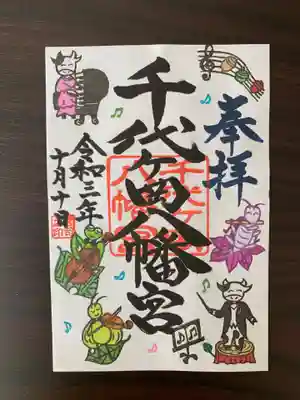 奉拝
千代ヶ岡八幡宮
千代ヶ岡
八幡宮
令和三年
十月十日